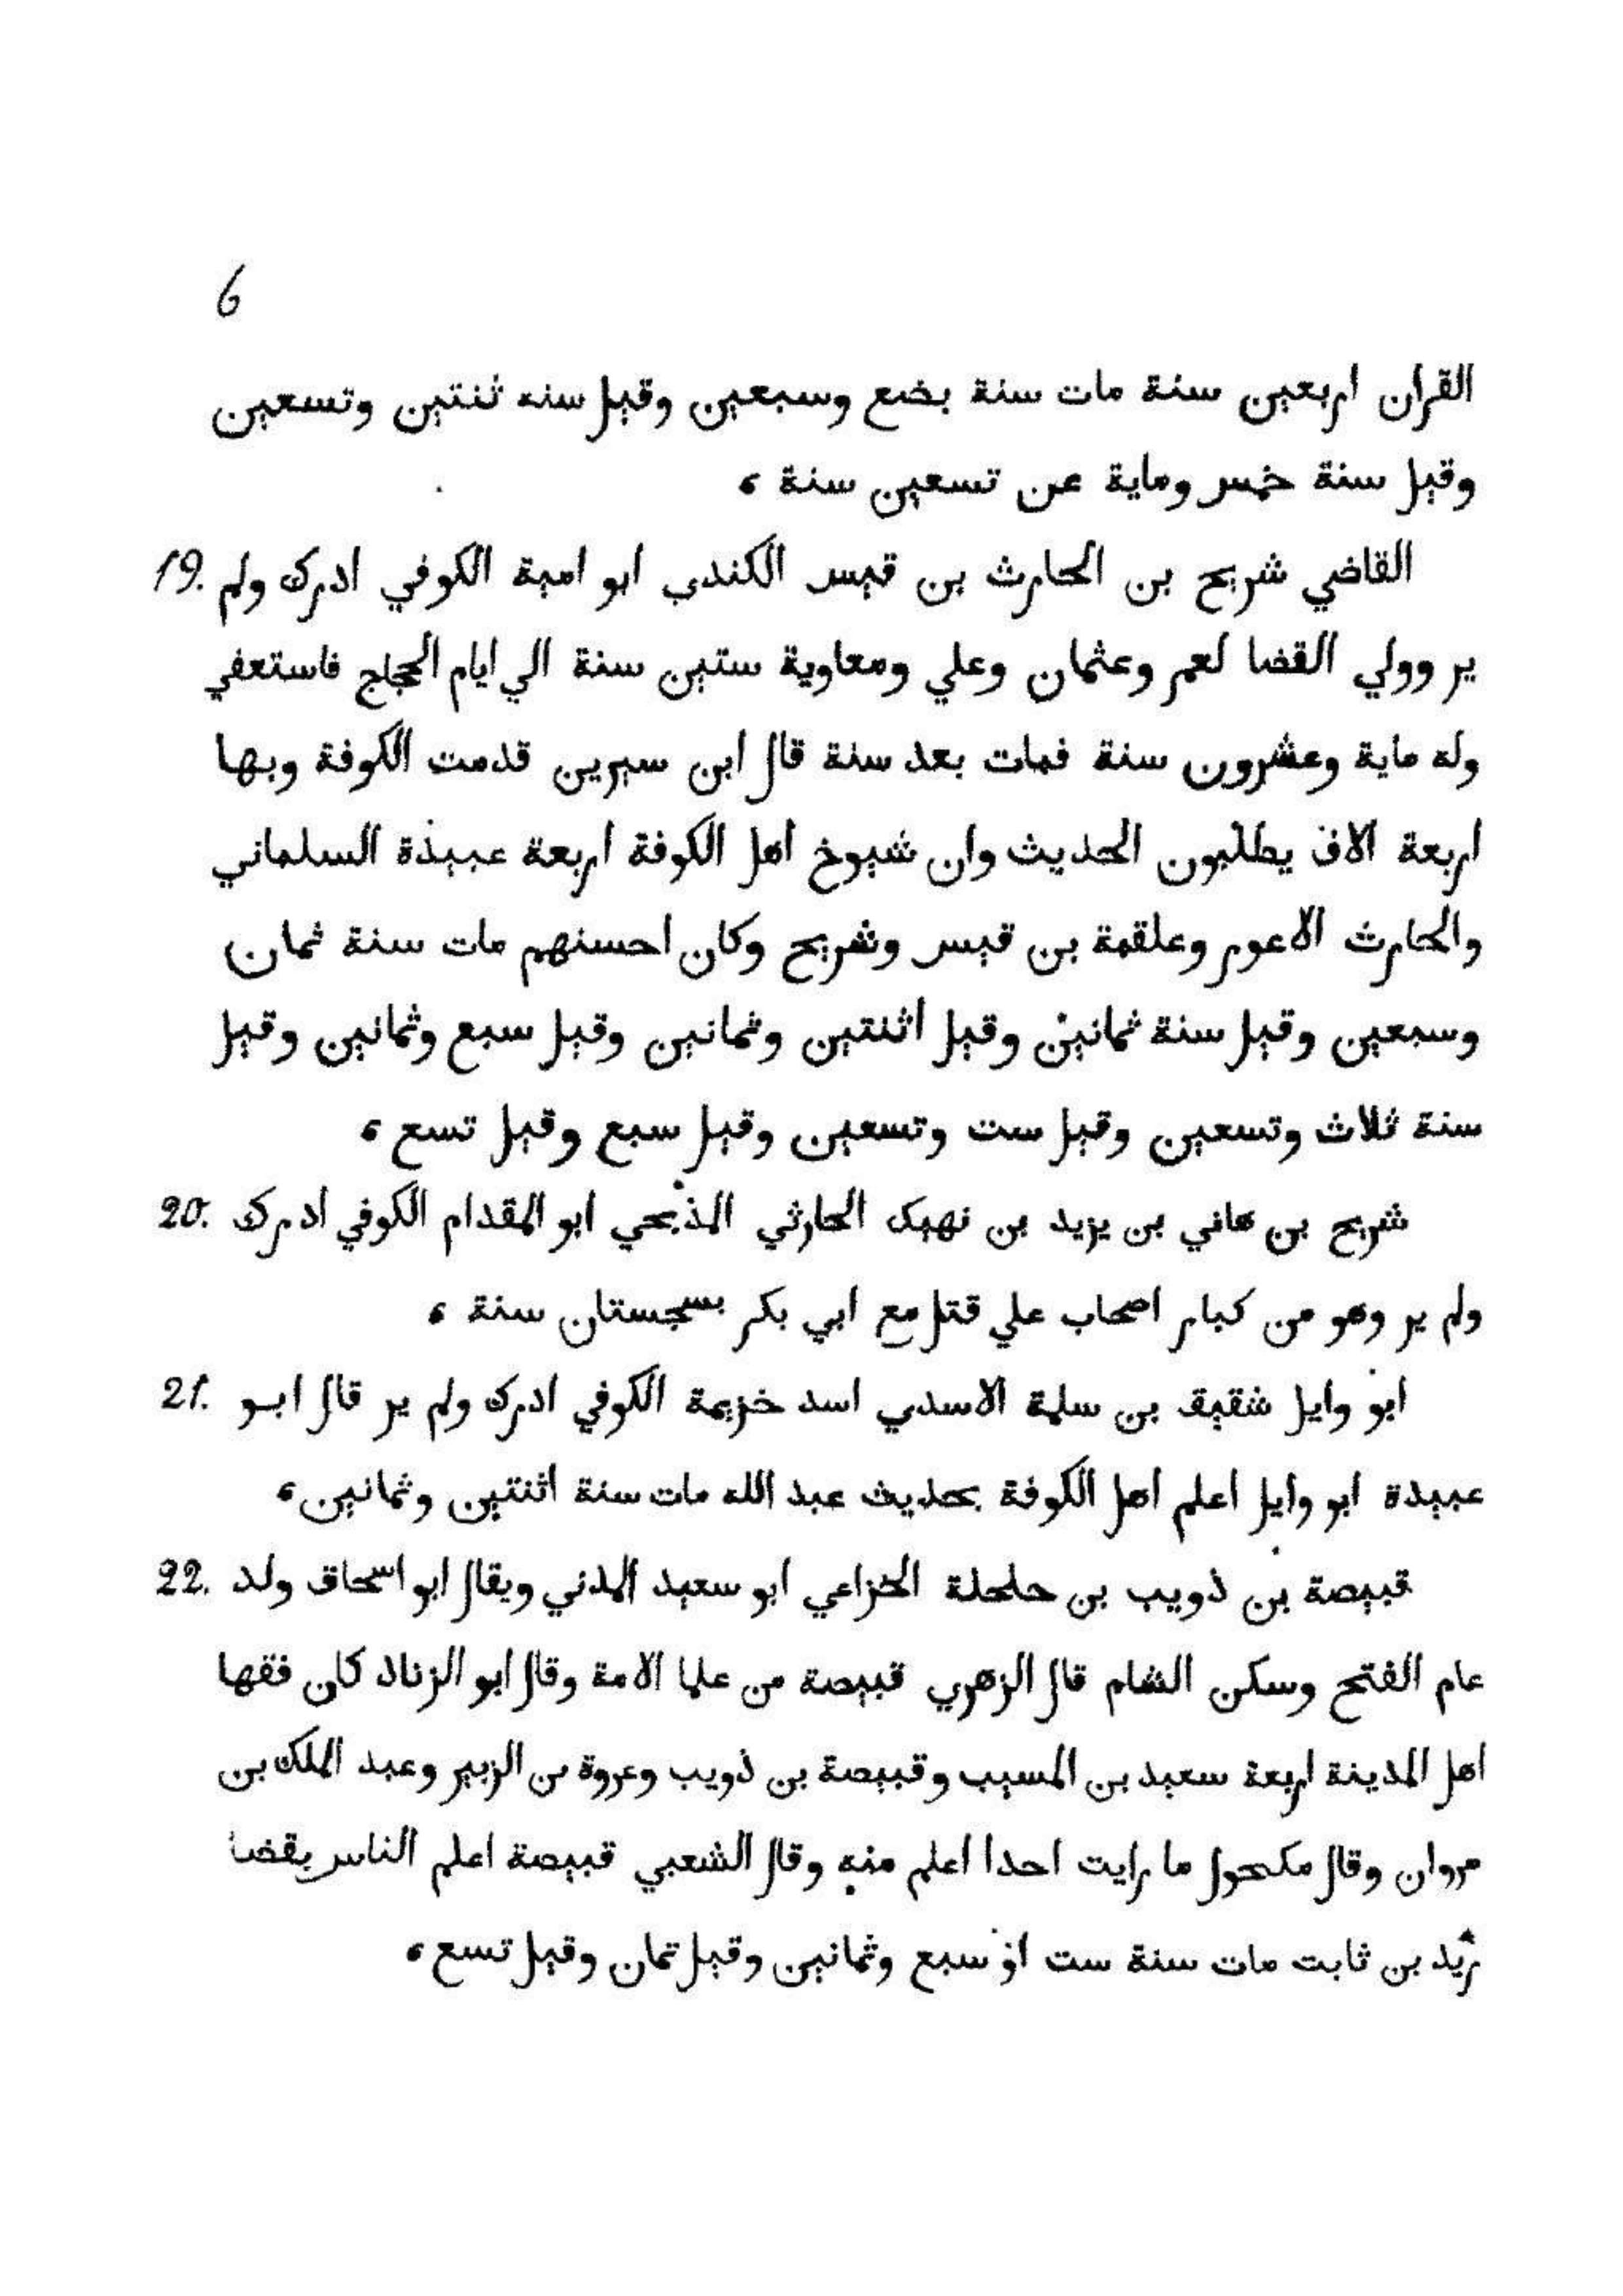 6
القران اربعين سنة مات سنة بضع وسبعين وقيل سنه ثنتين وتسعين
وقيل سنة خمس وماية عن تسعين سنة ،
القاضي شريح بن الحارث بن قيس الكندي ابو امية الكوفي ادرك ولم .19
ير وولي القضا لعمر وعثمان وعلي ومعاوية ستين سنة الي ايام الحجاج فاستعفي
وله ماية وعشرون سنة فمات بعد سنة قال ابن سيرين قدمت الكوفة وبها
اربعة الاف يطلبون الحديث وان شيوخ اهل الكوفة اربعة عبيذة السلماني
والحارث الاعور وعلقمة بن قيس وشريح وكان احسنهم مات سنة ثمان
وسبعين وقيل سنة ثمانين وقيل اثنتين وثمانين وقيل سبع وثمانين وقيل
سنة ثلاث وتسعين وقيل ست وتسعين وقيل سبع وقيل تسع ،
شريح بن هاني بن يزيد بن نهيك الحارثي المذحجي ابو المقدام الكوفي ادرك .20
ولم ير وهو من كبار اصحاب علي قتل مع ابي بكر بسجستان سنة ،
ابو وايل شقيق بن سلمة الاسدي اسد خزيمة الكوفي ادرك ولم ير قال ابو .21
عبيدة ابو وايل اعلم اهل الكوفة بحديث عبد الله مات سنة اثنتين وثمانين ،
قبيصة بن ذويب بن حلحلة الخزاعي ابو سعيد المدني ويقال ابو اسحاق ولد .22
عام الفتح وسكن الشام قال الزهري قبيصة من علما الامة وقال ابو الزناد كان فقها
اهل المدينة اربعة سعيد بن المسيب وقبيصة بن ذويب وعروة بن الزبير وعبد الملك بن
مروان وقال مكحول ما رايت احدا اعلم منه وقال الشعبي قبيصة اعلم الناس بقضا
زيد بن ثابت مات سنة ست او سبع وثمانين وقيل ثمان وقيل تسع ،